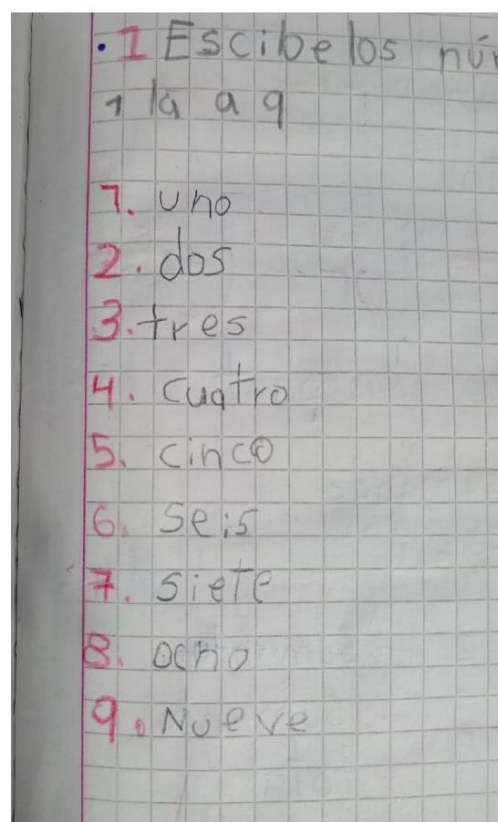 • 1 Escibe los nú
1 la a 9
1. uno
2. dos
3. tres
4. cuatro
5. cinco
6. seis
7. siete
8. ocho
9. Nueve